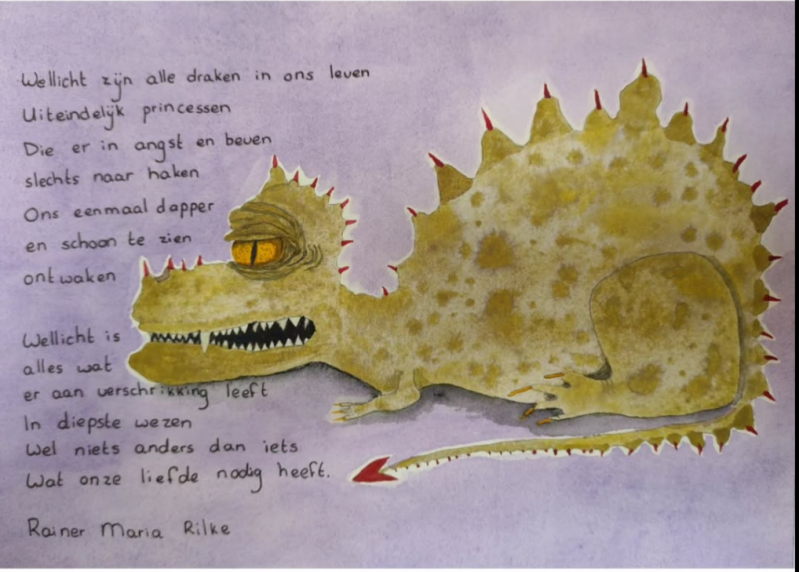 Wellicht zijn alle draken in ons leven
Uiteindelijk princessen
Die er in angst en beven
slechts naar haken
Ons eenmaal dapper
en schoon te zien
ontwaken
Wellicht is
alles wat
er aan verschrikking leeft
In diepste wezen
Wel niets anders dan iets
Wat onze liefde nodig heeft.
Rainer Maria Rilke